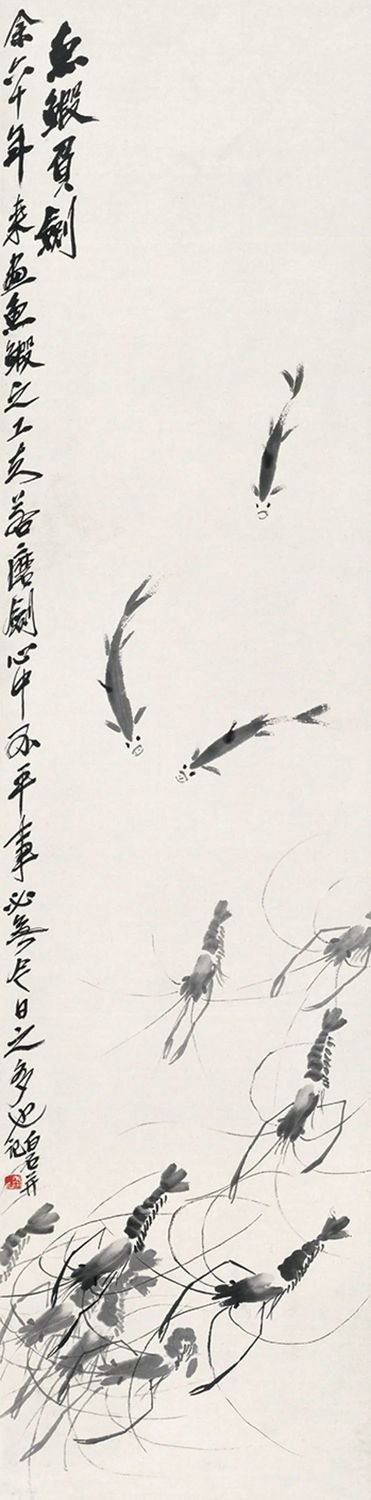 魚鰕負劍
余六十年來畫魚鰕之工夫若磨劍心中不平事必無今日之多也白石并記